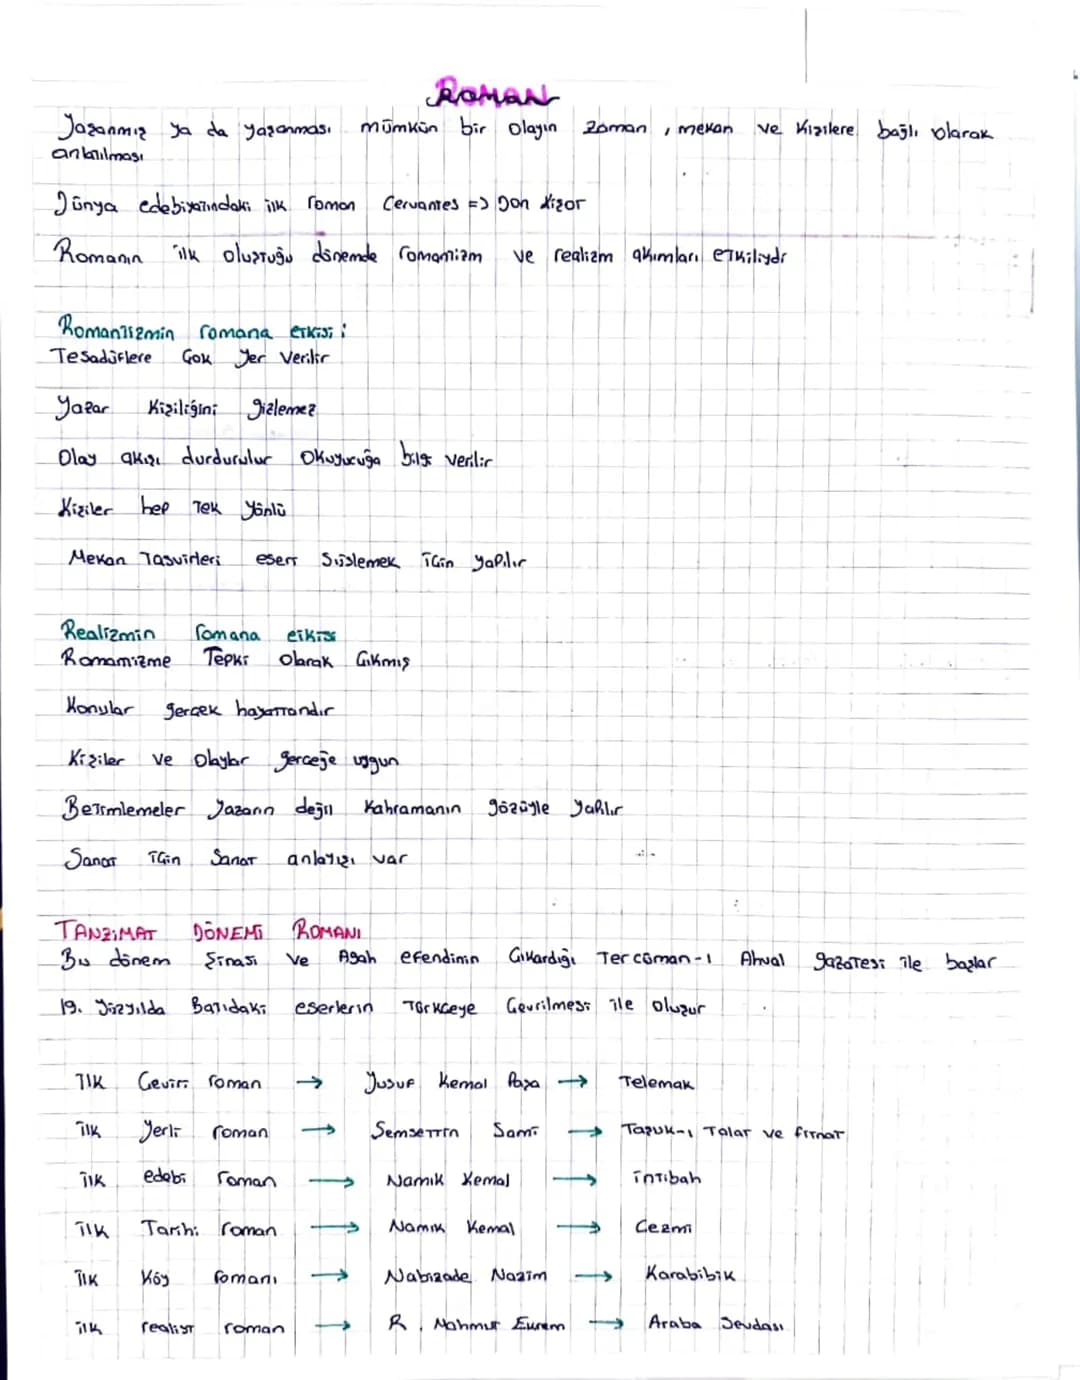 ROMAN
Yaşanmış ya da yaşanması mümkün bir olayın zaman, mekan ve kişilere bağlı olarak
anlatılması
Dünya edebiyatındaki ilk roman Cervantes => Don Kişot
Romanın ilk oluştuğu dönemde romantizm ve realizm akımları etkiliydi
Romantizmin romana etkisi:
Tesadüflere çok yer verilir
Yazar kişiliğini gizlemez
Olay akışı durdurulur okuyucuğa bilgi verilir
Kişiler hep tek yönlü
Mekan tasvirleri eseri süslemek için yapılır
Realizmin romana etkisi
Romantizme tepki olarak çıkmış
Konular gerçek hayattandır
Kişiler ve olaylar gerçeğe uygun
Betimlemeler yazarın değil kahramanın gözüyle yapılır
Sanat için sanat anlayışı var
TANZİMAT DÖNEMİ ROMANI
Bu dönem Şinasi ve Agah efendinin çıkardığı Tercüman-ı Ahval gazetesi ile başlar
19. yüzyılda Batıdaki eserlerin Türkçeye çevrilmesi ile oluşur
İlk çeviri roman → Yusuf Kemal Paşa → Telemak
ilk yerli roman → Şemsettin Sami → Taşuk-ı Talat ve fitnat
ilk edebi roman → Namık Kemal → intibah
ilk Tarihi roman → Namık Kemal → Cezmi
ilk Köy romanı → Nabızade Nazim → Karabibik
ilk realist roman → R. Mahmut Ekrem → Araba Sevdası